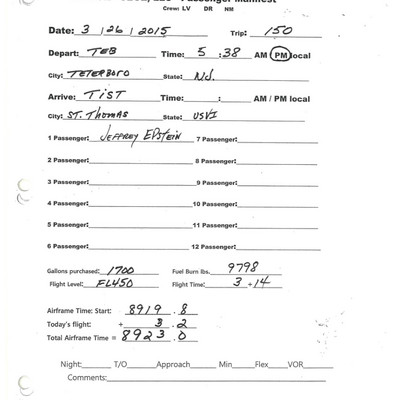 Passenger Manifest
Crew: LV DR NM
Date: 3 / 26 / 2015 Trip: 150
Depart: TEB Time: 5 : 38 AM / PM local
City: TETERBORO State: NJ.
Arrive: TIST Time: : AM / PM local
City: ST. THOMAS State: USVI
1 Passenger: JEFFREY EPSTEIN 7 Passenger:
2 Passenger: 8 Passenger:
3 Passenger: 9 Passenger:
4 Passenger: 10 Passenger:
5 Passenger: 11 Passenger:
6 Passenger: 12 Passenger:
Gallons purchased: 1700 Fuel Burn lbs. 9798
Flight Level: FL450 Flight Time: 3 + 14
Airframe Time: Start: 8919 . 8
Today's flight: + 3 . 2
Total Airframe Time = 8923 . 0
Night: T/O Approach Min Flex VOR
Comments: